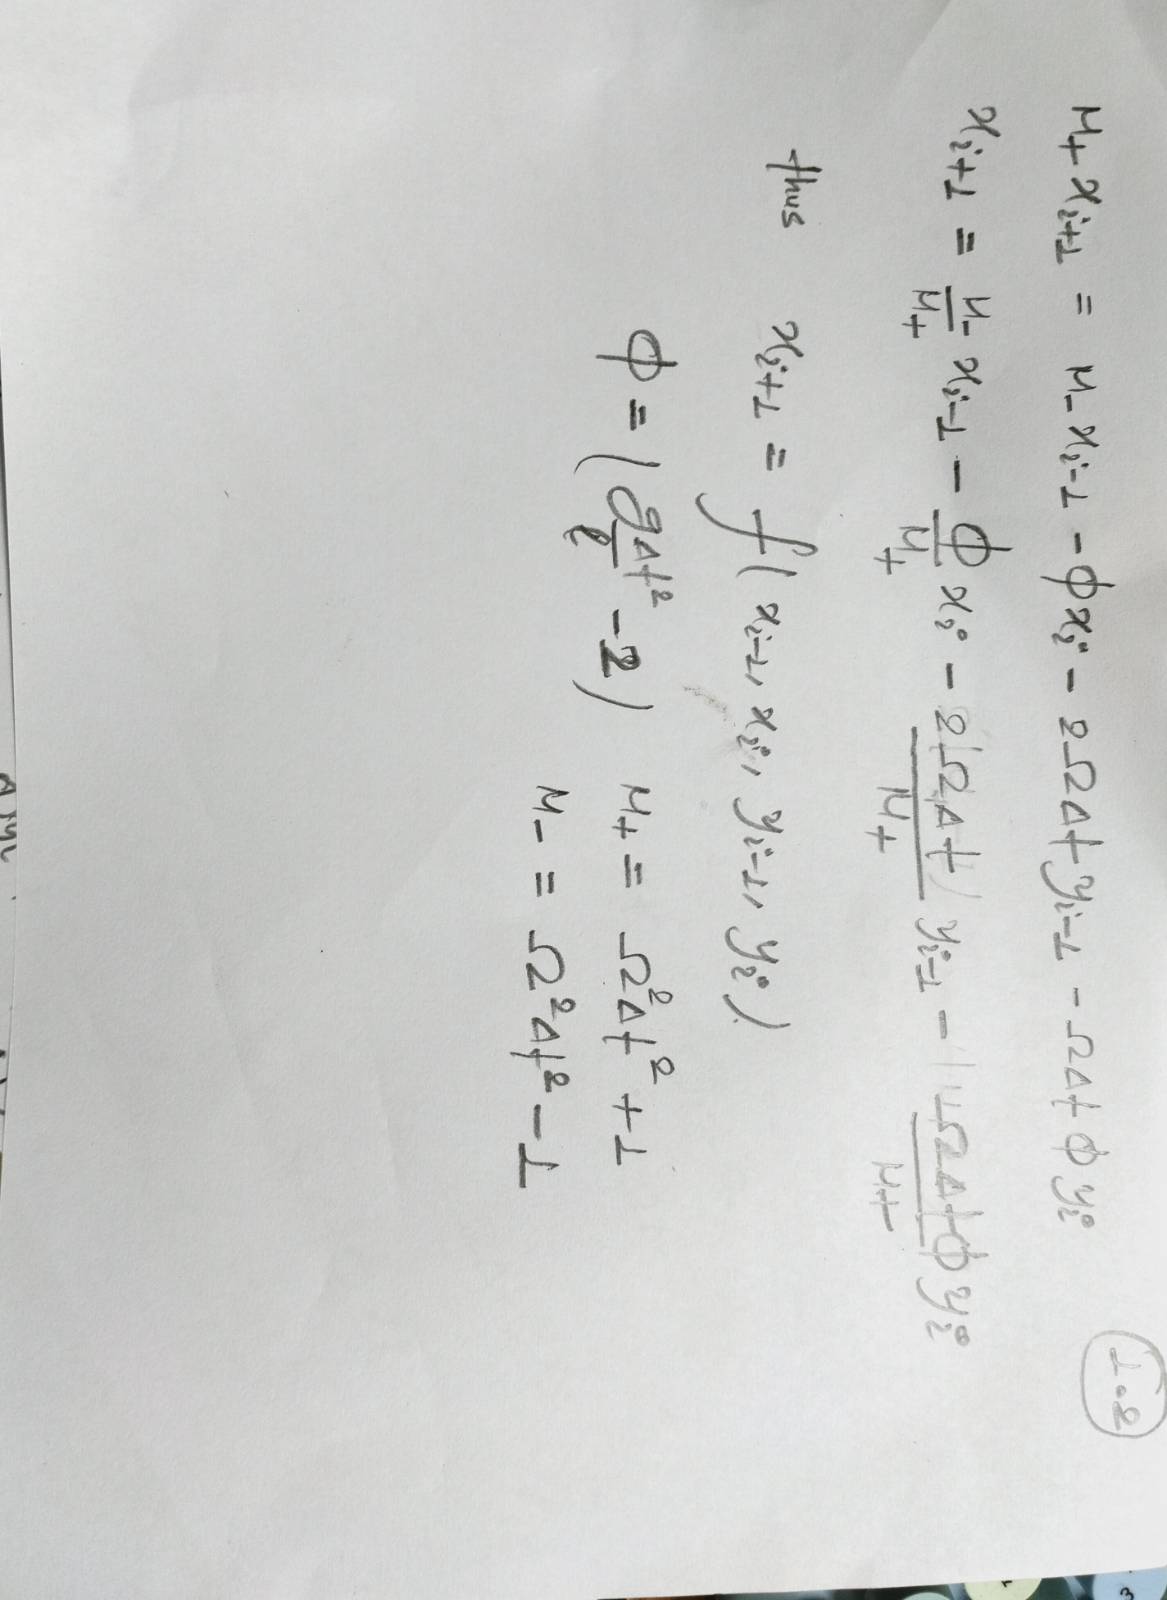 1.2
M₊ xᵢ₊₁ = M₋ xᵢ₋₁ - ϕxᵢ - 2ΩΔt yᵢ₋₁ - ΩΔt ϕ yᵢ
xᵢ₊₁ = M₋/M₊ xᵢ₋₁ - ϕ/M₊ xᵢ - (2ΩΔt)/M₊ yᵢ₋₁ - ΩΔtϕ/M₊ yᵢ
thus xᵢ₊₁ = f(xᵢ₋₁, xᵢ, yᵢ₋₁, yᵢ)
ϕ = (gΔt²/ℓ - 2) M₊ = Ω²Δt² + 1
M₋ = Ω²Δt² - 1